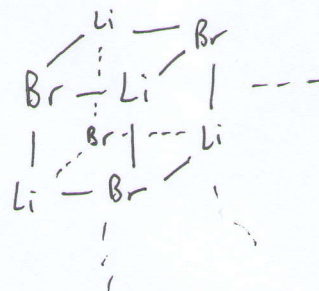 Li
Br
Br
Li
Br
Li
Li
Br